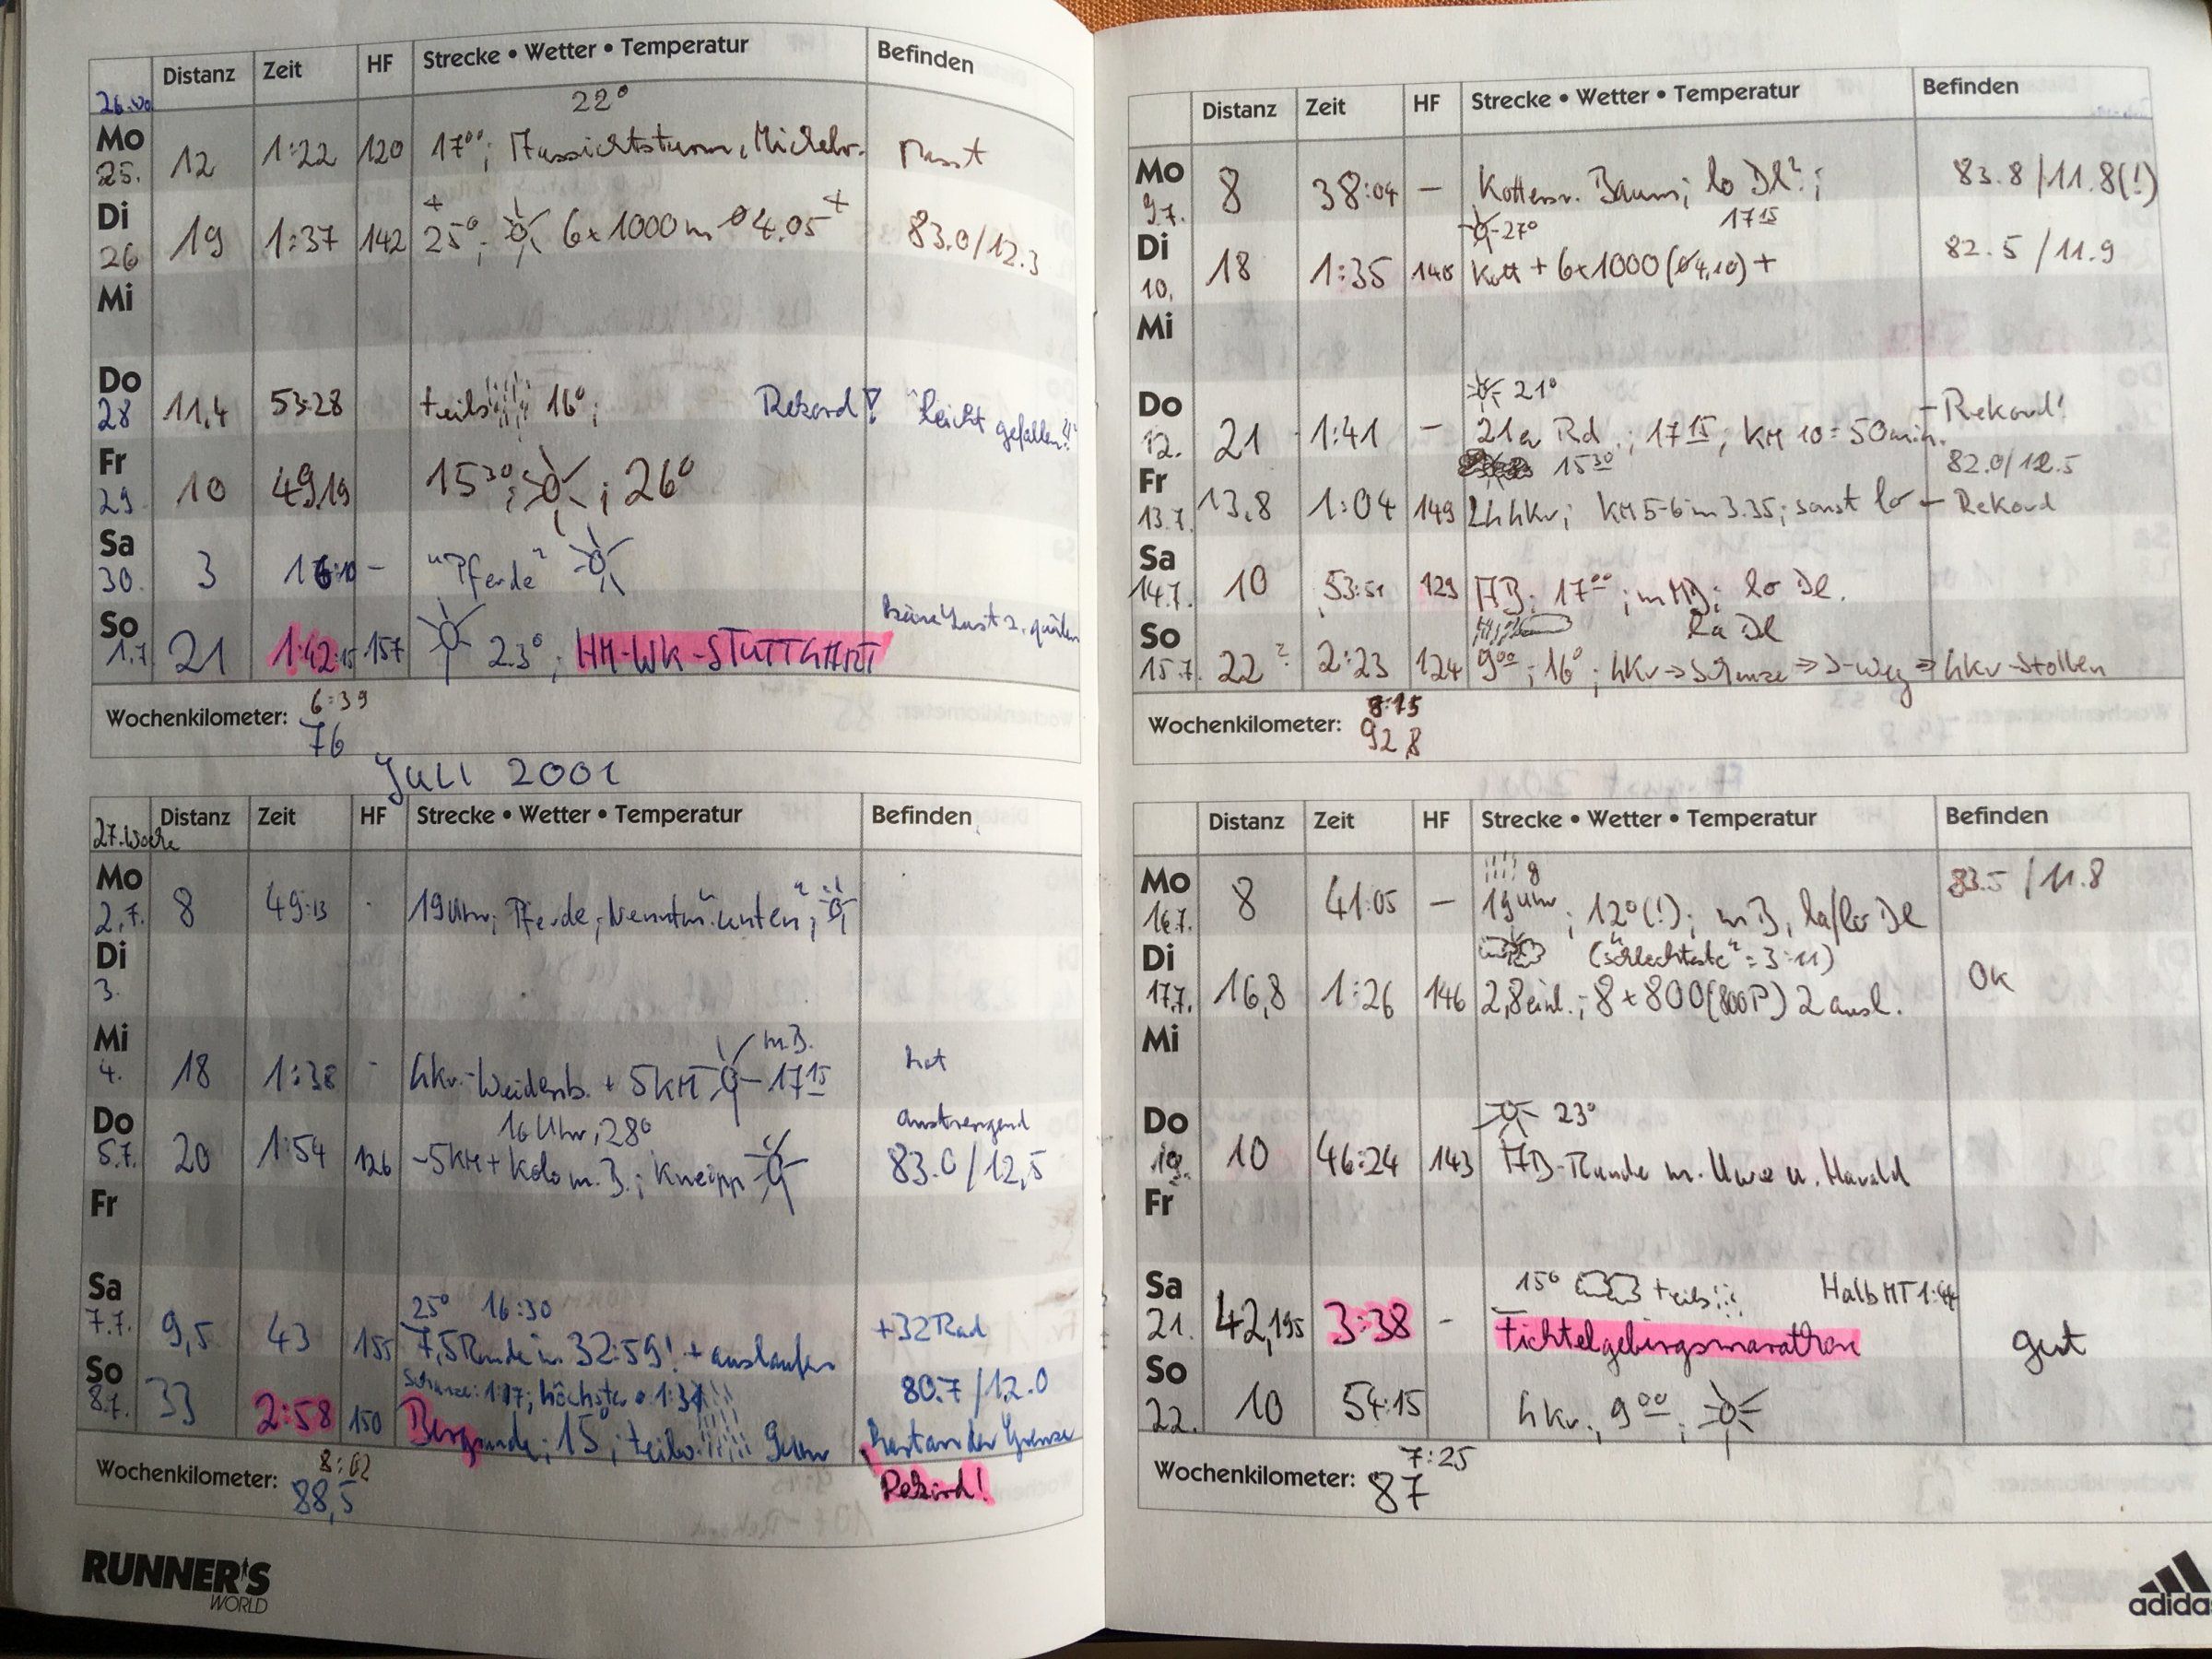 Distanz Zeit HF Strecke • Wetter • Temperatur Befinden
22°
Mo 25. 12 1:22 120 17⁰⁰; Aussichtsturm, Passt
Di 26 19 1:37 142 25°; 6x1000m ø4.05 + 83.0/12.3
Mi
Do 28 11,4 53:28 teils 16°; Rekord! "Leicht gefallen!!"
Fr 29 10 49,19 15³⁰; ; 26°
Sa 30. 3 16:10 - "Pferde"
So 1.7 21 1:42:15 157 23°, HM-WK-STUTTGART keine Lust z. quälen
6:39
Wochenkilometer: 76
JULI 2001
27.Woche Distanz Zeit HF Strecke • Wetter • Temperatur Befinden
Mo 2.7. 8 49:13 - 19 Uhr; Pferde, unten",
Di 3.
m.B.
Mi 4. 18 1:38 - hkr.-Weidenb. + 5KM 17¹⁵ hot
16 Uhr, 28° anstrengend
Do 5.7. 20 1:54 126 -5KM+ Kolo m.B.; Kneipp 83.0/12,5
Fr
25° 16:30
Sa 7.7. 9,5 43 155 7,5 Runde in 32:59! + auslaufen +32 Rad
Schanze: 1:17; höchste 80.7/12.0
So 8.7. 33 2:58 150 Bergrunde; 15°; teilw. 9 Uhr Hart an der Grenze
8:02
Wochenkilometer: 88,5 Rekord!
RUNNER'S
WORLD
Distanz Zeit HF Strecke • Wetter • Temperatur Befinden
Mo 9.7. 8 38:04 - Kottensr. Baum; lo Dl²; 83.8/11.8(!)
27° 17¹⁵
Di 10. 18 1:35 Kott + 6x1000 (ø4,10) + 82.5/11.9
Mi
21°
Do 12. 21 1:41 - 21a Rd.; 17¹⁵; KM 10=50min. - Rekord!
15³⁰ 82.0/12.5
Fr 13.7. 13,8 1:04 149 KM 5-6 in 3.35; sonst lo - Rekord
Sa 14.7. 10 53:51 129 AB; 17⁰⁰; m MB; lo Dl.
la Dl
So 15.7. 22 ? 2:23 124 9⁰⁰; 16°; hkr → Schanze ⇒ ⇒ hkr-Stollen
8:15
Wochenkilometer: 92,8
Distanz Zeit HF Strecke • Wetter • Temperatur Befinden
Mo 16.7. 8 41:05 - 19 Uhr; 12°(!); m B, la/lo Dl 83.5/11.8
("schlechteste" = 3:11)
Di 17.7. 16,8 1:26 146 2,8 einl.; 8x800 (800P) 2 ausl. Ok
Mi
23°
Do 19. 10 46:24 143 AB-Runde m. Uwe u. Harald
Fr
15° + teils Halb MT 1:44
Sa 21. 42,195 3:38 - Fichtelgebirgsmarathon gut
So 22. 10 54:15 hkr., 9⁰⁰;
7:25
Wochenkilometer: 87
adidas